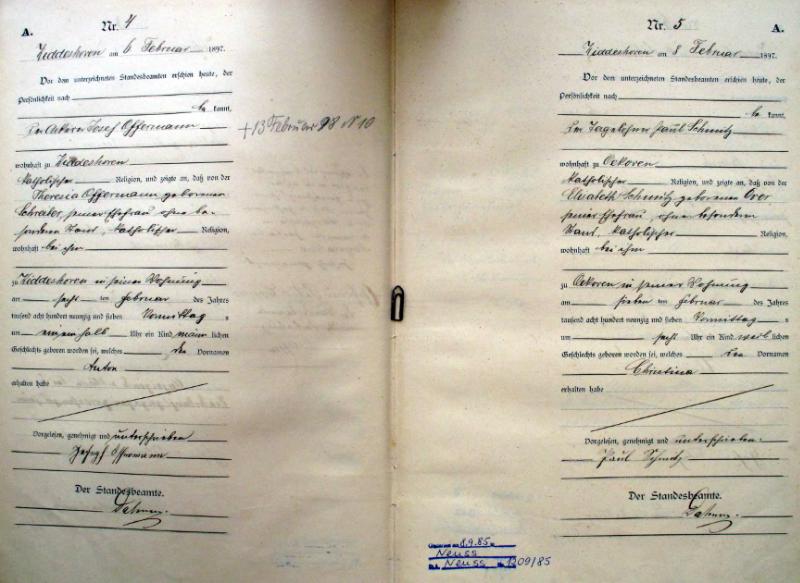 A.
Nr. 4
Widdeshoven am 6 Februar 1897.
Vor dem unterzeichneten Standesbeamten erschien heute, der
Persönlichkeit nach
be kannt,
Der Ackerer Josef Offermann
wohnhaft zu Widdeshoven
katholischer Religion, und zeigte an, daß von der
Theresia Offermann geborenen
seiner Ehefrau ohne be-
sonderen Stand, katholischer Religion,
wohnhaft bei ihm
zu Widdeshoven in seiner Wohnung
am sechs ten Februar des Jahres
tausend acht hundert neunzig und sieben Vormittag s
um ein ein halb Uhr ein Kind männ lichen
Geschlechts geboren worden sei, welches den Vornamen
Anton
erhalten habe
Vorgelesen, genehmigt und unterschrieben
Joseph Offermann
Der Standesbeamte.
+ 13 Februar 98 N 10
Nr. 5
A.
Widdeshoven am 8 Februar 1897.
Vor dem unterzeichneten Standesbeamten erschien heute, der
Persönlichkeit nach
be kannt,
Der Tagelöhner Paul Schmitz
wohnhaft zu Oekoven
katholischer Religion, und zeigte an, daß von der
Elisabeth Schmitz geborenen
seiner Ehefrau, ohne besonderen
Stand, katholischer Religion,
wohnhaft bei ihm
zu Oekoven in seiner Wohnung
am sieben ten Februar des Jahres
tausend acht hundert neunzig und sieben Vormittag s
um sechs Uhr ein Kind weib lichen
Geschlechts geboren worden sei, welches den Vornamen
Christina
erhalten habe
Vorgelesen, genehmigt und unterschrieben.
Paul Schmitz
Der Standesbeamte.
Neuss
Neuss